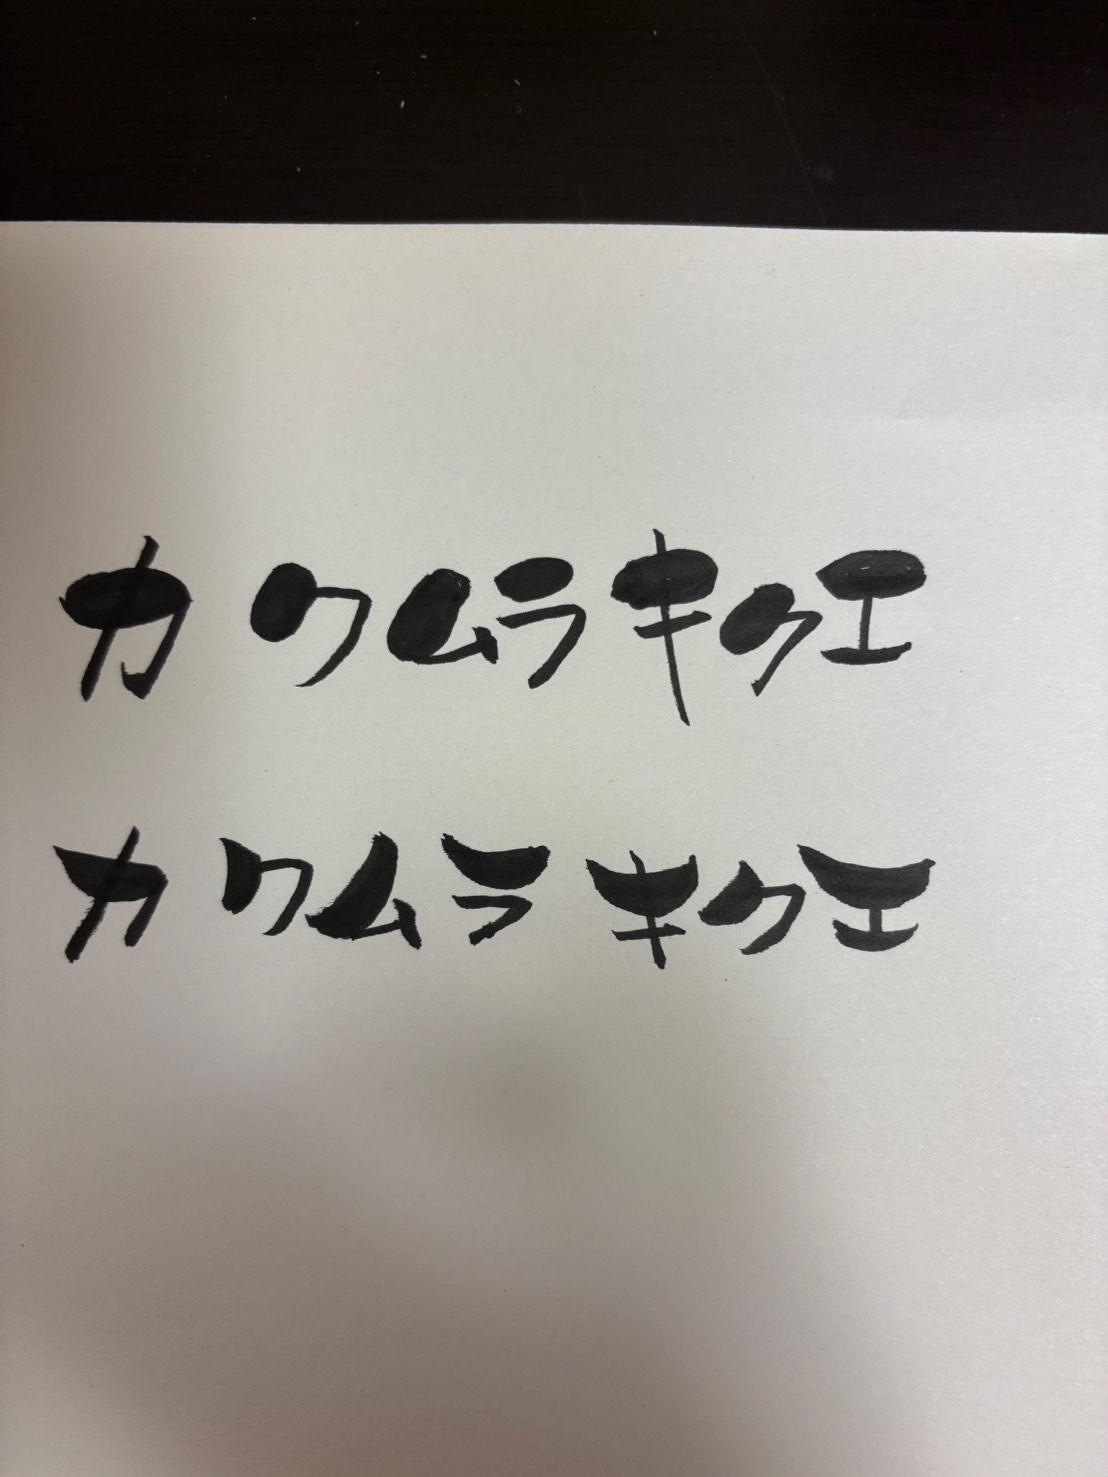 カワムラキクエ
カワムラキクエ